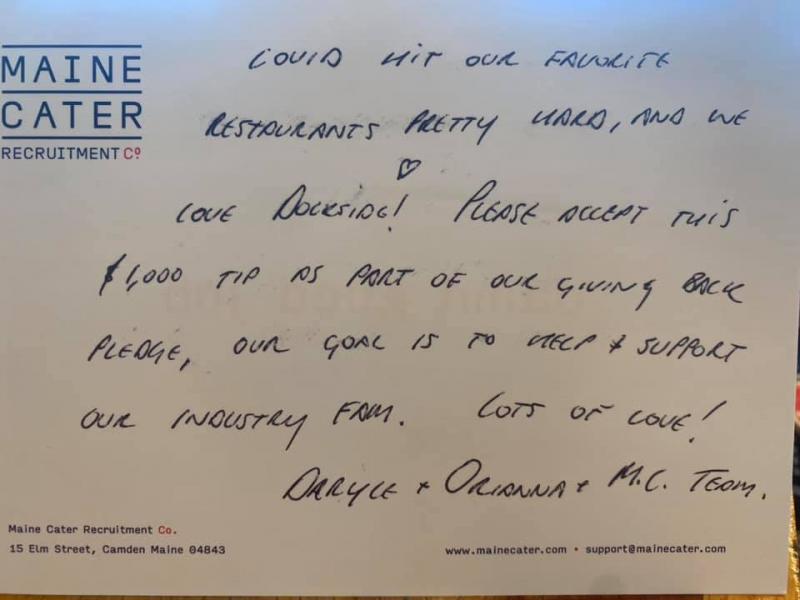 MAINE
CATER
RECRUITMENT Co
COVID HIT OUR FAVORITE
RESTAURANTS PRETTY HARD, AND WE
♡
LOVE DOCKSIDE! PLEASE ACCEPT THIS
$1,000 TIP AS PART OF OUR GIVING BACK
PLEDGE, OUR GOAL IS TO HELP & SUPPORT
OUR INDUSTRY FAM. LOTS OF LOVE!
DARYLE + ORIANNA + M.C. TEAM.
Maine Cater Recruitment Co.
15 Elm Street, Camden Maine 04843
www.mainecater.com • support@mainecater.com